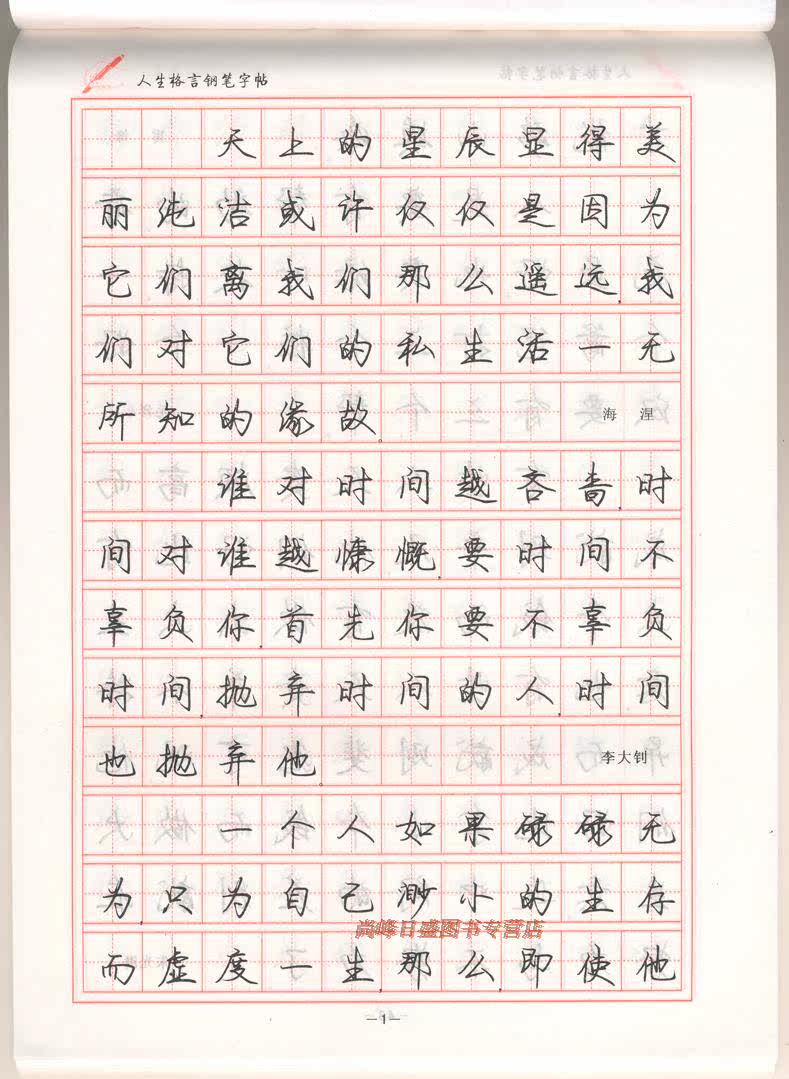 人生格言钢笔字帖
天上的星辰显得美
丽纯洁或许仅仅是因为
它们离我们那么遥远,我
们对它们的私生活一无
所知的缘故。 海 涅
谁对时间越吝啬,时
间对谁越慷慨,要时间不
辜负你,首先你要不辜负
时间,抛弃时间的人,时间
也抛弃他。 李大钊
一个人如果碌碌无
为,只为自己渺小的生存
尚峰日盛图书专营店
而虚度一生,那么即使他
—1—